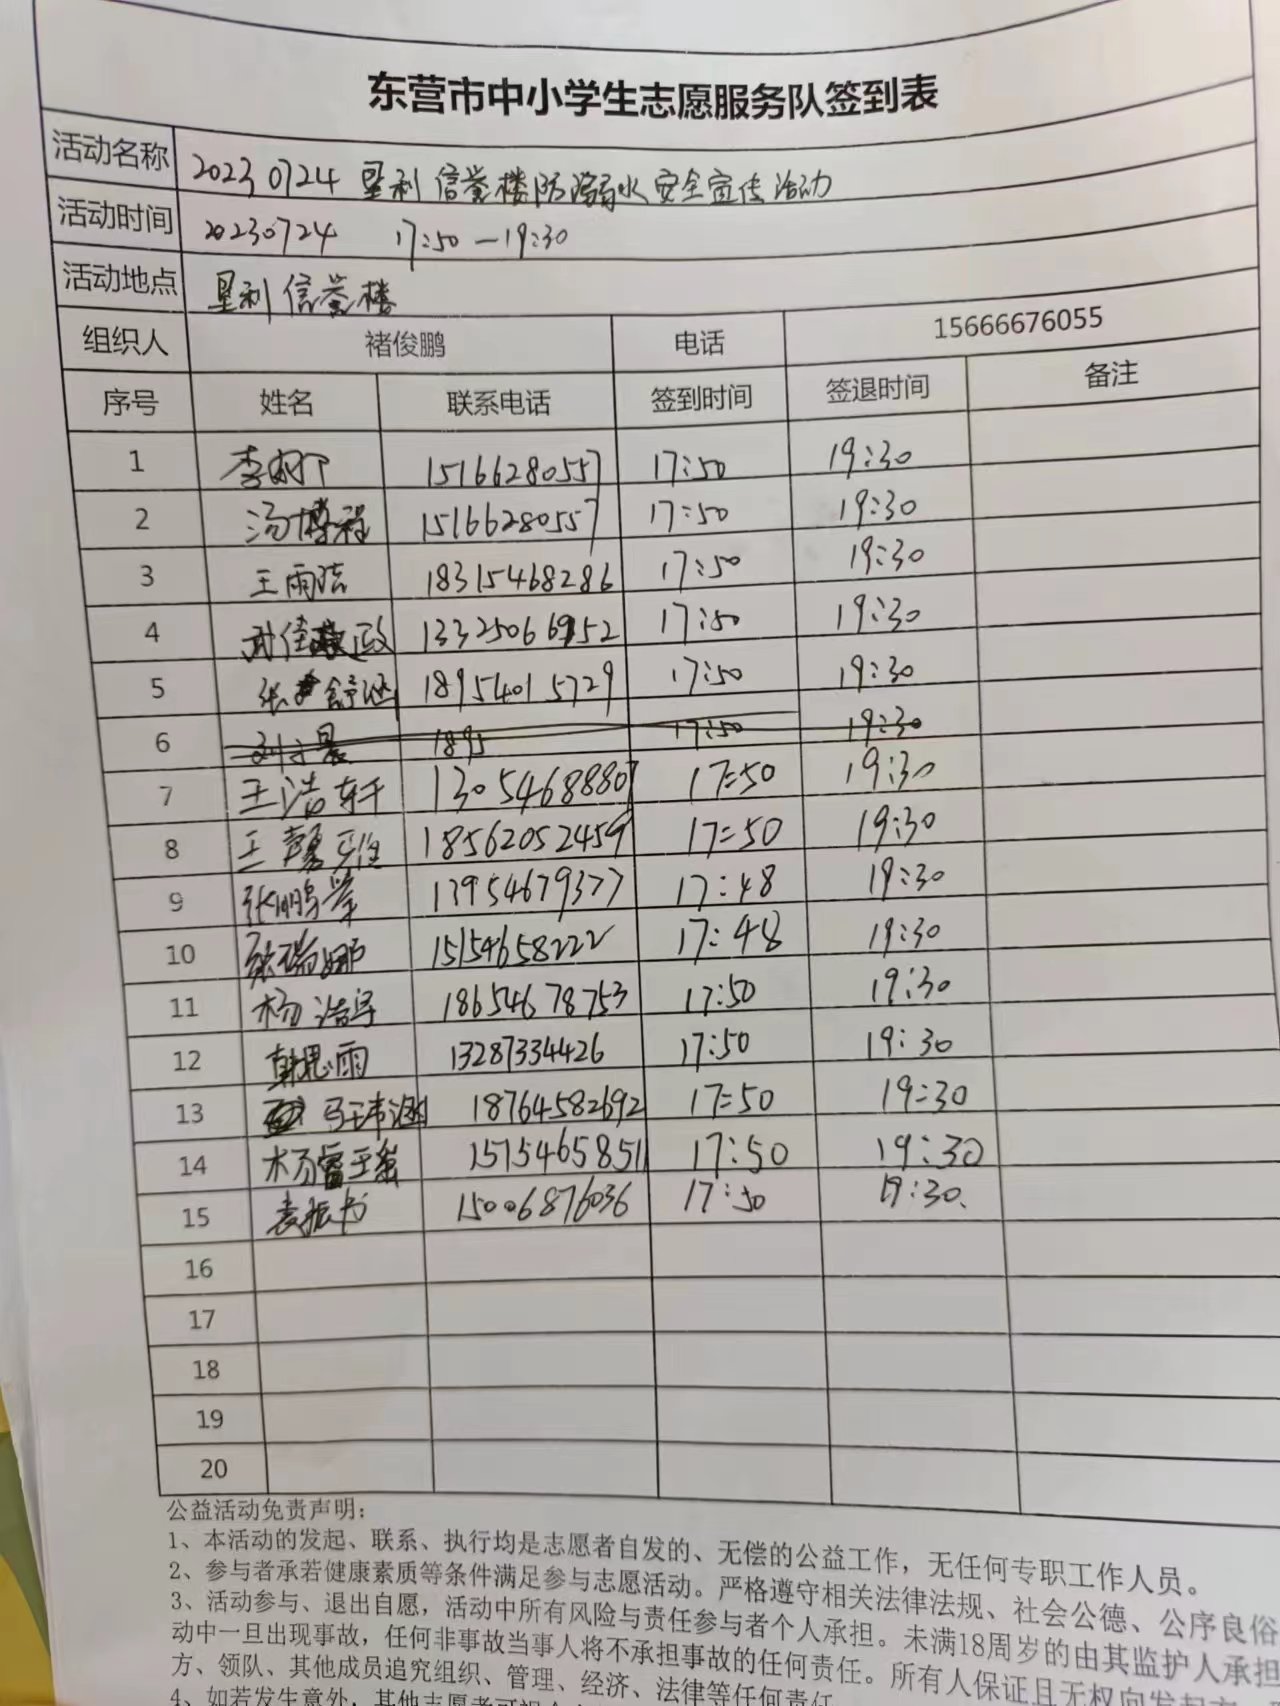 东营市中小学生志愿服务队签到表
活动名称 20230724 垦利信誉楼防溺水安全宣传活动
活动时间 20230724 17:50—19:30
活动地点 垦利信誉楼
组织人 褚俊鹏 电话 15666676055
序号 姓名 联系电话 签到时间 签退时间 备注
1 李 15166280557 17:50 19:30
2 汤博程 15166280557 17:50 19:30
3 王雨 18315468286 17:50 19:30
4 佳 17:50 19:30
5 张舒涵 18954015729 17:50 19:30
6 1895 17:50 19:30
7 王浩轩 13054688807 17:50 19:30
8 王 18562052459 17:50 19:30
9 张鹏 13954679377 17:48 19:30
10 瑞娜 15154658222 17:48 19:30
11 杨浩宇 18654678753 17:50 19:30
12 韩思雨 13287334426 17:50 19:30
13 马玮涵 18764582692 17:50 19:30
14 杨 15154658511 17:50 19:30
15 袁振书 15006876036 17:50 19:30
16
17
18
19
20
公益活动免责声明：
1、本活动的发起、联系、执行均是志愿者自发的、无偿的公益工作，无任何专职工作人员。
2、参与者承若健康素质等条件满足参与志愿活动。严格遵守相关法律法规、社会公德、公序良俗
3、活动参与、退出自愿，活动中所有风险与责任参与者个人承担。未满18周岁的由其监护人承担
动中一旦出现事故，任何非事故当事人将不承担事故的任何责任。所有人保证且无权向发起方
方、领队、其他成员追究组织、管理、经济、法律等任何责任
4、如若发生意外，其他志愿者可